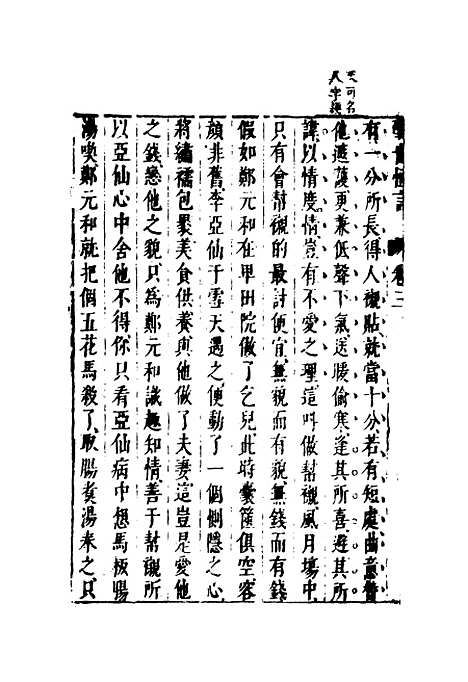 卷三
有一分所長得人襯貼就當十分若有短處曲意替
他遮護更兼低聲下氣送暖偷寒逢其所喜避其所
諱以情度情豈有不愛之理這叫做幫襯風月場中
只有會幫襯的最討便宜無貌而有貌無錢而有錢
假如鄭元和在卑田院做了乞兒此時囊篋俱空容
顏非舊李亞仙于雪天遇之便動了一個惻隱之心
將繡襦包裹美食供養與他做了夫妻這豈是愛他
之錢戀他之貌只為鄭元和識趣知情善于幫襯所
以亞仙心中舍他不得你只看亞仙病中想馬板腸
湯喫鄭元和就把個五花馬殺了取腸煮湯奉之只